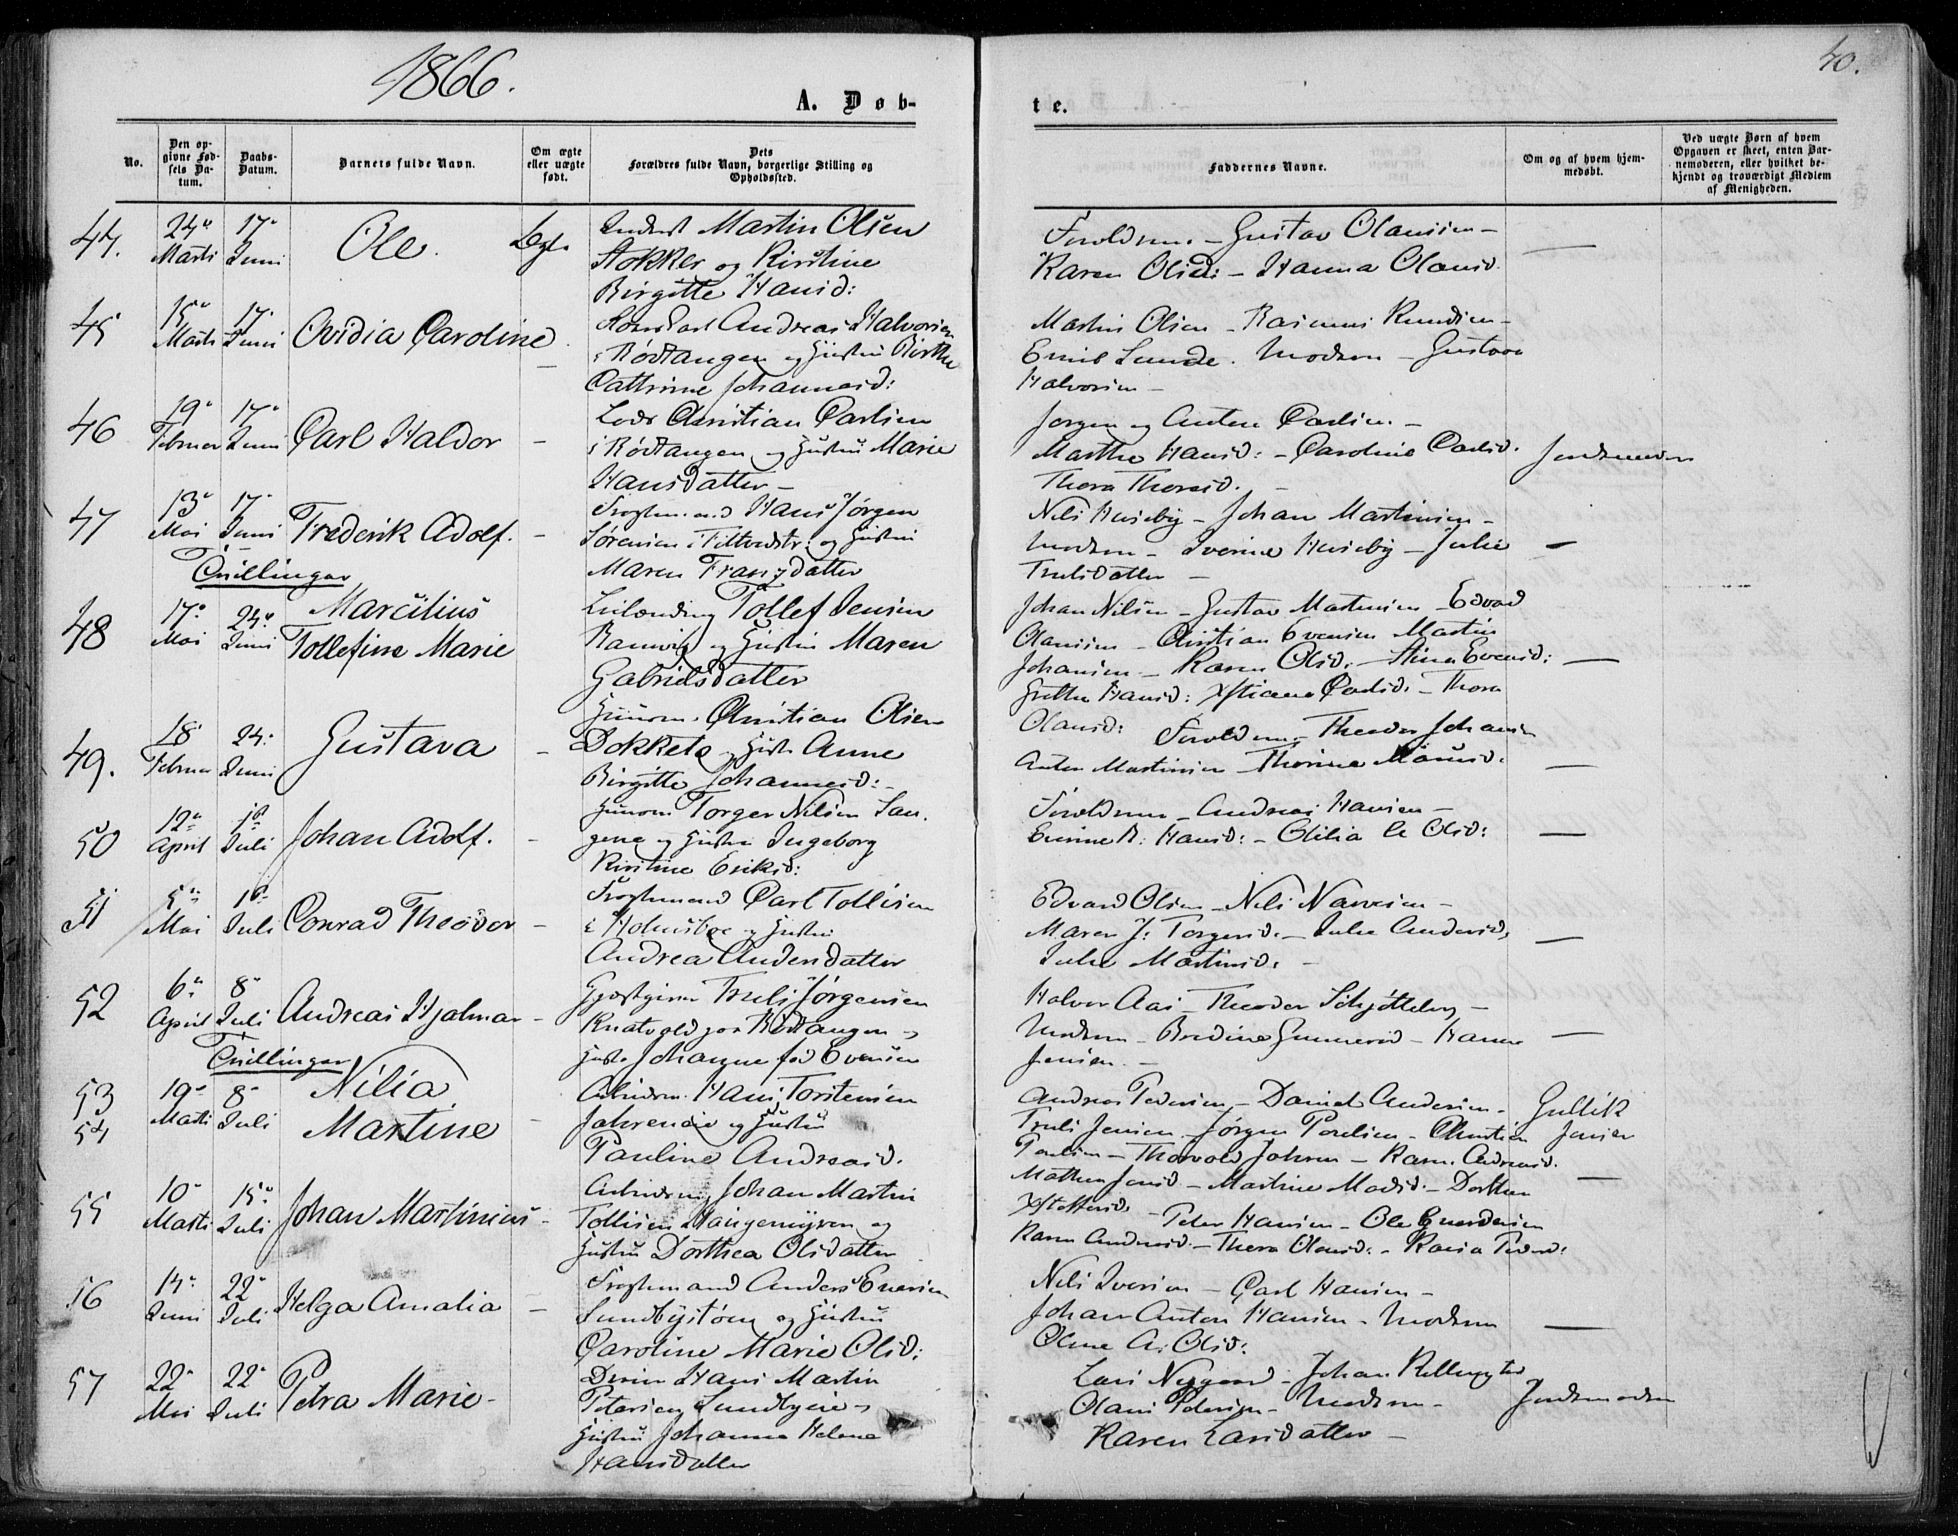 1866.
40.
A. Døb-
te.
No.
Den op-
givne Fød-
sels Da-
tum.
Daabs-
Datum.
Barnets fulde Navn.
Om ægte
eller uægte
født.
Dets
Forældres fulde Navn, borgerlige Stilling og
Opholdssted.
Faddernes Navne.
Om og af hvem hjem-
medøbt.
Ved uægte Børn af hvem
Opgaven er skeet, enten Bar-
nemoderen, eller hvilket be-
kjendt og troværdigt Medlem
af Menigheden.
44.
24de
Marts
17de
Juni
Ole.
Martin Olsen
Stokker og Kirstine
Birgitte Hansd:
Gustav Olaussen -
Karen Olsd: - Hanna Olausd.
45
15de
Marts
17de
Juni
Ovidia Caroline
Andreas Halvorsen
i Rødtangen og Hustru Birthe
Cathrine Johannesd:
Martin Olsen - Rasmus Knudsen -
Emil Lunde. Modren - Gustava
Halvorsen -
46
19de
Februar
17de
Juni
Carl Haldor
Lods Christian Carlsen
i Rødtangen og Hustru Marie
Hansdatter -
Jørgen og Anton Carlsen -
Marthe Hansd: - Caroline Carlsd.
Thora Thoresd. -
Jordmoder
47
13de
Mai
17de
Juni
Frederik Adolf.
Hans Jørgen
Sørensen i Filtvedtstr: og Hustru
Maren Franzdatter
Nils Huseby - Johan Martinsen -
Modren - Iverine Huseby - Julie
Trulsdatter -
Tvillinger
48
17de
Mai
24de
Juni
Marcilius
Tollefine Marie
Leilænding Tollef Jensen
Ramvig og Hustru Maren
Gabrielsdatter
Johan Nilsen - Gustav Martinsen - Edvard
Olaussen - Christian Evensen Martin
Johansen - Karen Olsd. - Stina Evensd:
Grethe Hansd: Xstiane Carlsd. - Thora
Olausd:
49.
18de
Februar
24de
Juni
Gustava
Christian Olsen
Dokkelo og Hustr Anne
Birgitte Johannesd: -
Theodor Johansen
Anton Martinsen - Thorine
50
12te
April
1ste
Juli
Johan Adolf.
Torger Nilsen San-
gene og Hustru Ingeborg
Kirstine Eriksd:
Andreas Hansen -
Hansd: - Olilia Olsd:
51
5te
Mai
1ste
Juli
Conrad Theodor
Carl Tollisen
i Holmsboe og Hustru
Andrea Andersdatter
Edvard Olsen - Nils Narvesen -
Maren J: Torgersd. - Julie Andersd.
Julie Martinsd. -
52
6te
April
8de
Juli
Andreas Hjalmar
Gjæstgiver Truls Jørgensen
Knatvold paa Rødtangen og
Hustr Johanne fød Evensen
Halvor Aas - Theodor Schjøtteberg -
Modren - Bredine Gunnerød - Hanna
Jensen. -
Tvillinger
53
54
19de
Marts
8de
Juli
Nilia
Martine
Arbeidsm. Hans Torstensen
og Hustru
Pauline Andreasd.
Andreas Pedersen - Daniel Andersen -
Truls Jensen - Jørgen Poulsen - Christian
Poulsen - Thorvald Johnsen - Karen Andreasd.
Mathea Jensd - Martine Madsd. - Dorthea
Gullik
Jensen
55
10de
Marts
15de
Juli
Johan Martinius
Johan Martin
Tollisen Haugemyren og
Hustru Dorthea Olsdatter
Peter Hansen - Ole
Karen Andersd. - Thora Olausd. - Pedersd:
56
14de
Juni
22de
Juli
Helga Amalia
Anders Evensen
Sundbystøen og Hustru
Caroline Marie Olsd:
Nils Iversen - Carl Hansen -
Johan Anton Hansen - Modren
Oline A: Olsd:
57
22de
Mai
22de
Juli
Petra Marie
Hans Martin
Petersen Sundbyeie og
Hustru Johanne Helene
Hansdatter
Lars Nygaard - Johan
Olaus Petersen - Modren -
Karen Larsdatter -
Jordmoderen